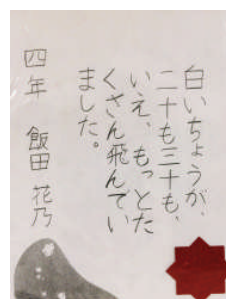 白いちょうが、
二十も三十も、
いえ、もっとた
くさん飛んでい
ました。
四年 飯田 花乃